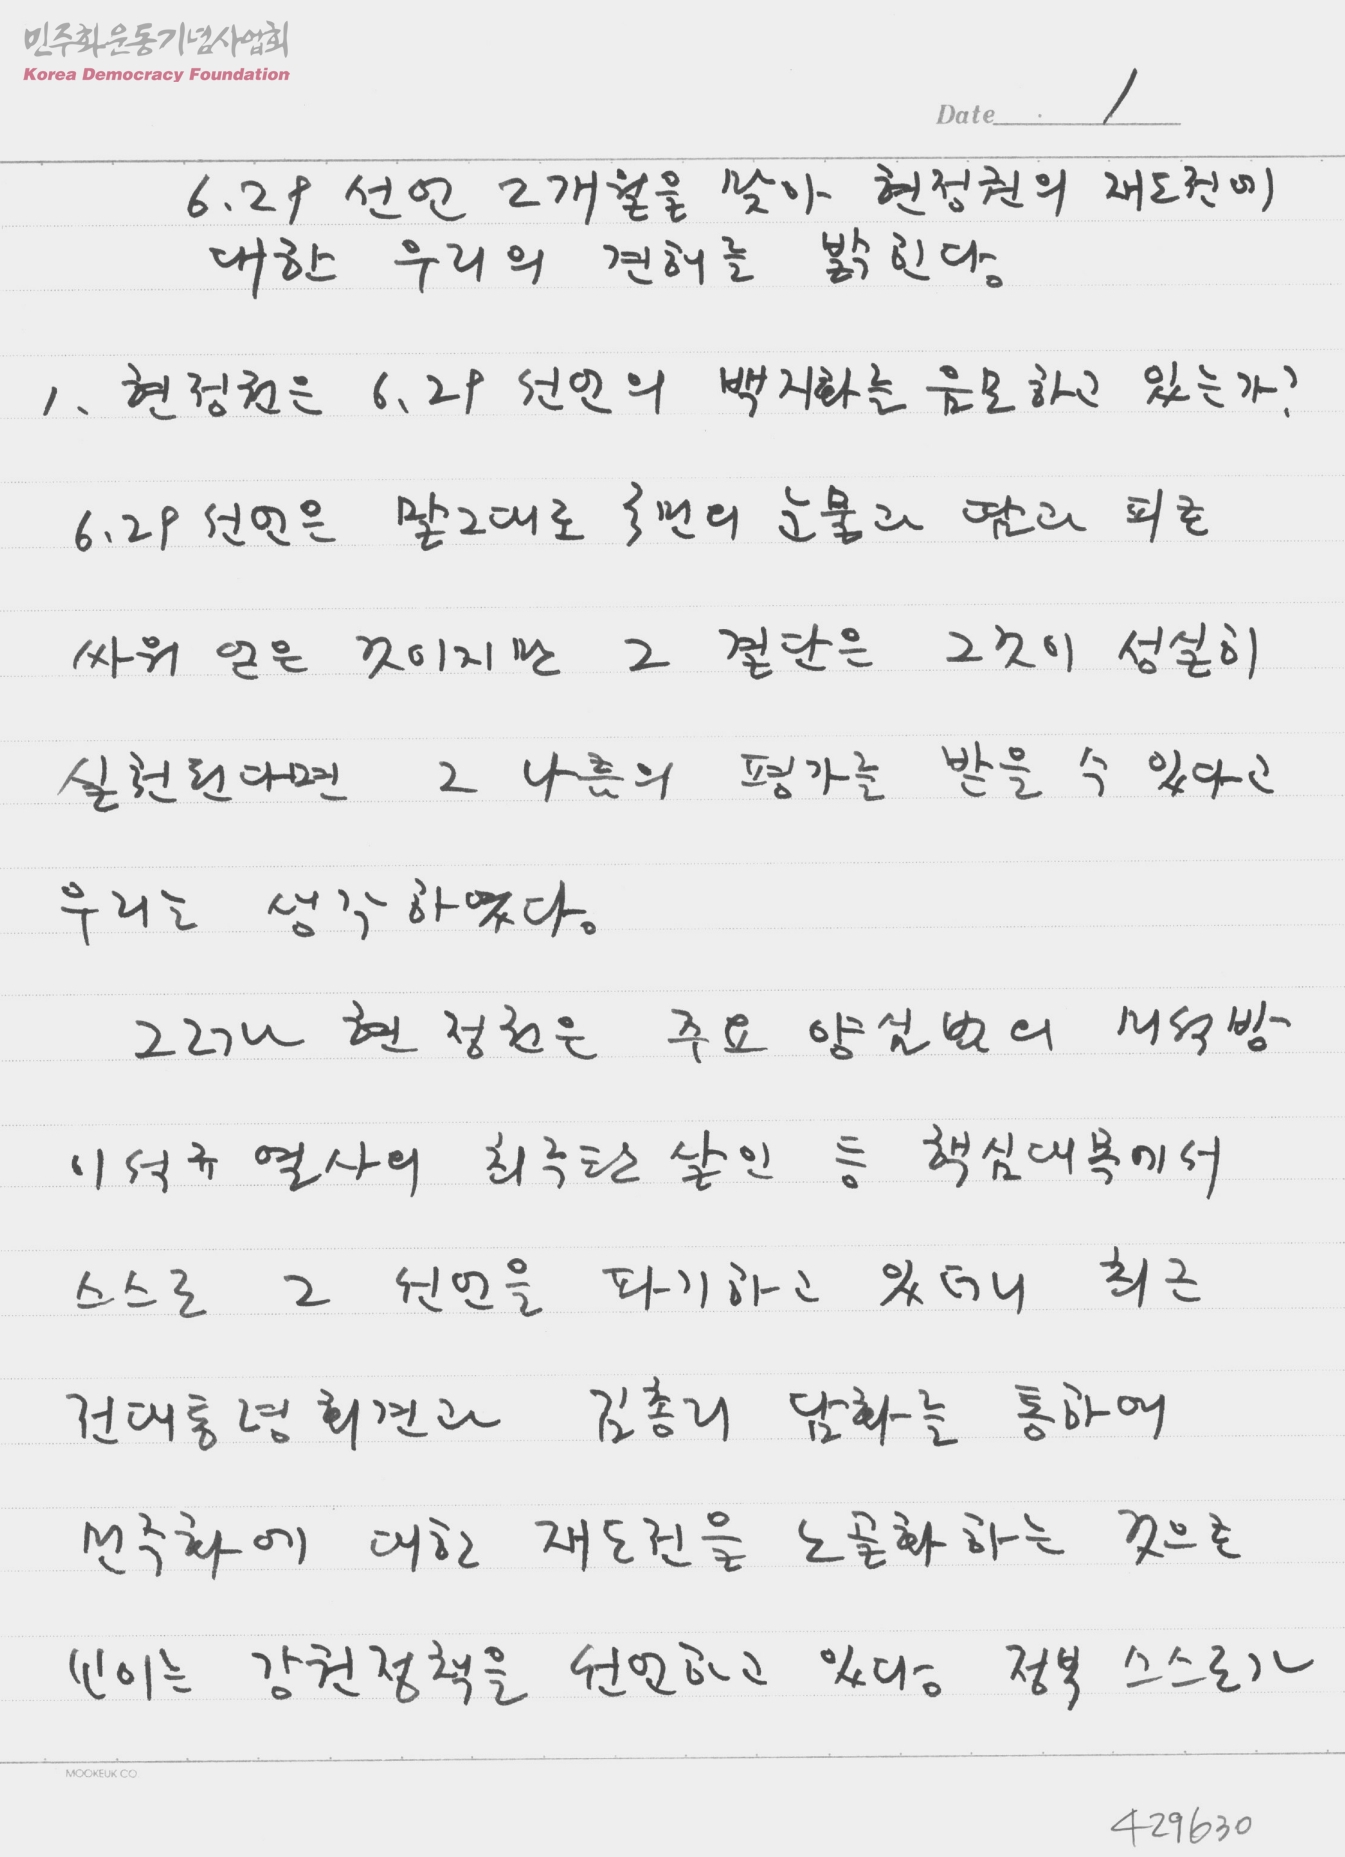 민주화운동기념사업회
Korea Democracy Foundation
Date . /
6.29 선언 2개월을 맞아 현정권의 재도전에
대한 우리의 견해를 밝힌다.
1. 현정권은 6.29 선언의 백지화를 음모하고 있는가?
6.29 선언은 말그대로 국민의 눈물과 땀과 피로
싸워 얻은 것이지만 그 결단은 그것이 성실히
실천된다면 그 나름의 평가를 받을 수 있다고
우리는 생각하였다.
그러나 현 정권은 주요 양심범의 미석방
이석규 열사의 최루탄 살인 등 핵심대목에서
스스로 그 선언을 파기하고 있더니 최근
전대통령 회견과 김총리 담화를 통하여
민주화에 대한 재도전을 노골화 하는 것으로
보이는 강권정책을 선언하고 있다. 정부 스스로가
MOOKEUK CO
429630